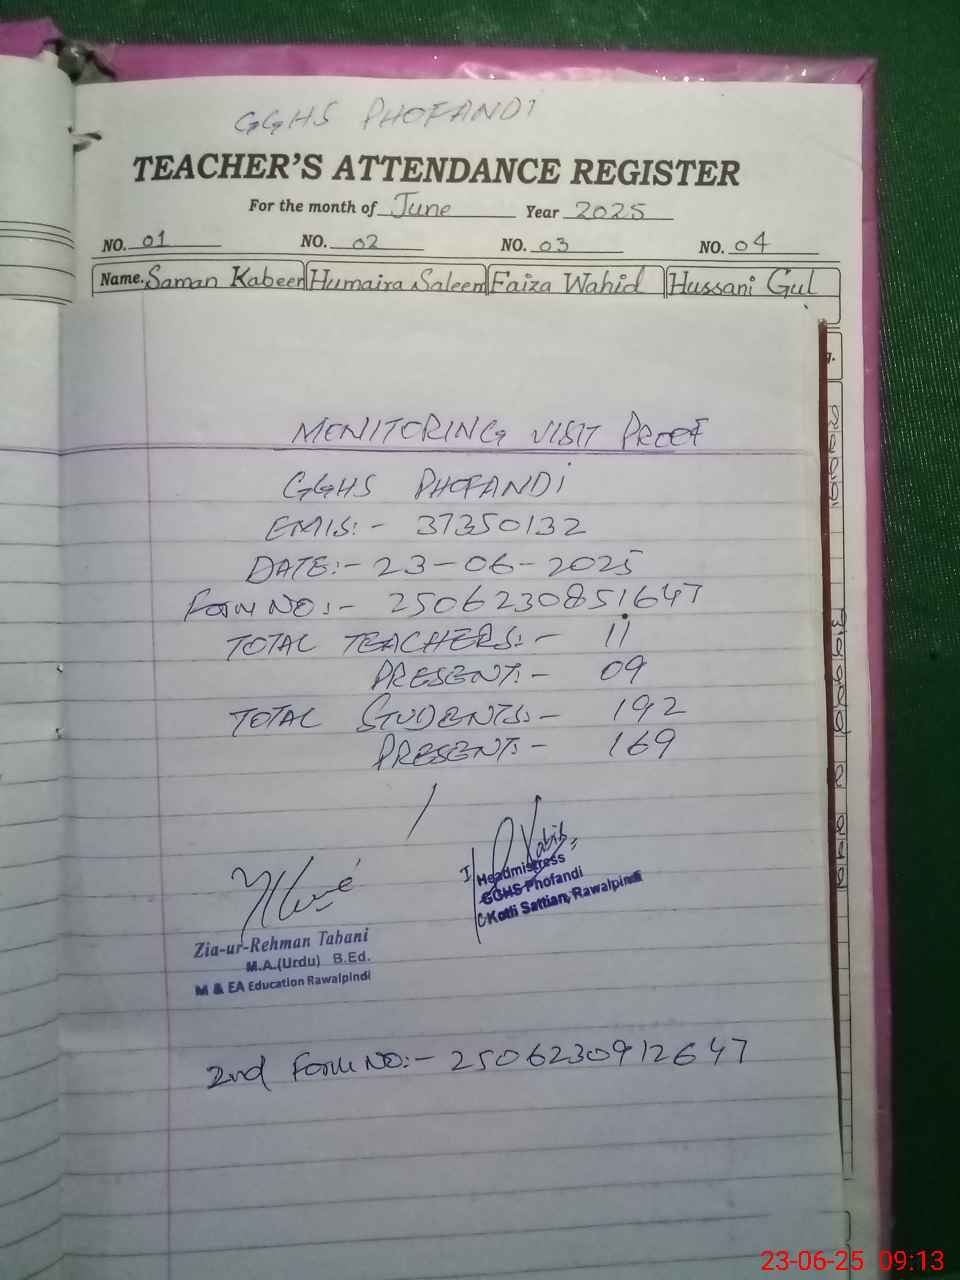 GGHS PHOFANDI
TEACHER'S ATTENDANCE REGISTER
For the month of June Year 2025
NO. 01 NO. 02 NO. 03 NO. 04
Name. Saman Kabeer Humaira Saleem Faiza Wahid Hussani Gul
MENITORING VISIT PROOF
GGHS PHOFANDI
EMIS:- 37350132
DATE:- 23-06-2025
Form NO:- 2506230851647
TOTAL TEACHERS:- 11
PRESENT:- 09
TOTAL STUDENTS:- 192
PRESENT:- 169
Headmistress
GGHS Phofandi
Kotli Sattian, Rawalpindi
Zia-ur-Rehman Tabani
M.A.(Urdu) B.Ed.
M & EA Education Rawalpindi
2nd Form NO:- 2506230912647
23-06-25 09:13